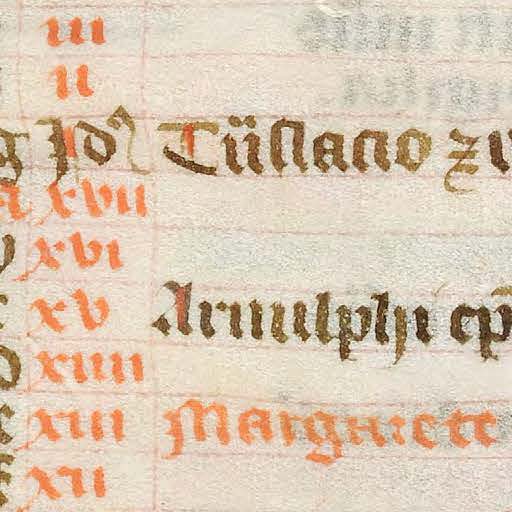 iii
ii
g Id⁹ Tñslacio
A xvii
xvi
xv Arnulphi ep̄
d xiiii
e xiii Margarete
xii